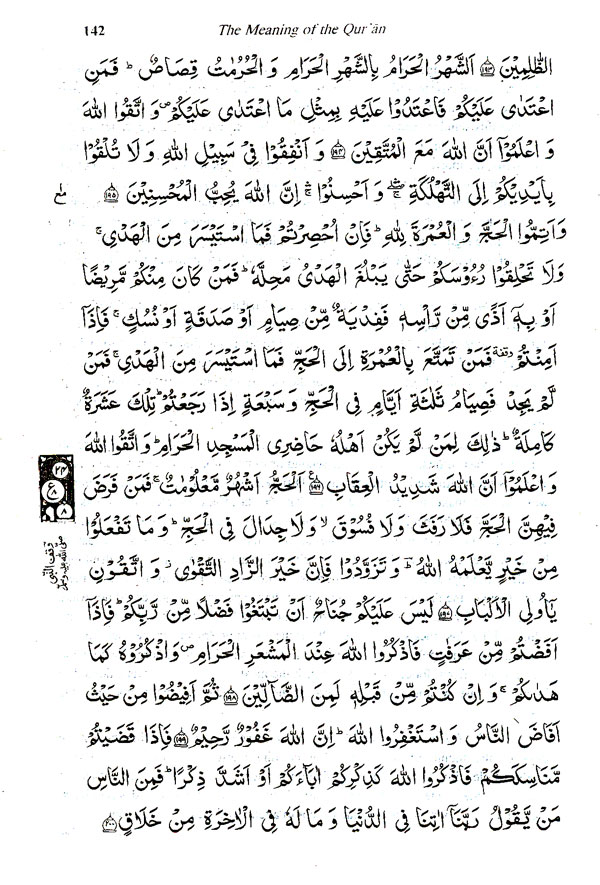 142 The Meaning of the Qur'ān
الظّٰلِمِیْنَ ﴿۱۹۳﴾ اَلشَّهْرُ الْحَرَامُ بِالشَّهْرِ الْحَرَامِ وَ الْحُرُمٰتُ قِصَاصٌ ؕ فَمَنِ
اعْتَدٰی عَلَیْكُمْ فَاعْتَدُوْا عَلَیْهِ بِمِثْلِ مَا اعْتَدٰی عَلَیْكُمْ ۪ وَ اتَّقُوا اللّٰهَ
وَ اعْلَمُوْۤا اَنَّ اللّٰهَ مَعَ الْمُتَّقِیْنَ ﴿۱۹۴﴾ وَ اَنْفِقُوْا فِیْ سَبِیْلِ اللّٰهِ وَ لَا تُلْقُوْا
بِاَیْدِیْكُمْ اِلَی التَّهْلُكَةِ ۛۖۚ وَ اَحْسِنُوْا ۛۚ اِنَّ اللّٰهَ یُحِبُّ الْمُحْسِنِیْنَ ﴿۱۹۵﴾
وَ اَتِمُّوا الْحَجَّ وَ الْعُمْرَةَ لِلّٰهِ ؕ فَاِنْ اُحْصِرْتُمْ فَمَا اسْتَیْسَرَ مِنَ الْهَدْیِ ۚ
وَ لَا تَحْلِقُوْا رُءُوْسَكُمْ حَتّٰی یَبْلُغَ الْهَدْیُ مَحِلَّهٗ ؕ فَمَنْ كَانَ مِنْكُمْ مَّرِیْضًا
اَوْ بِهٖۤ اَذًی مِّنْ رَّاْسِهٖ فَفِدْیَةٌ مِّنْ صِیَامٍ اَوْ صَدَقَةٍ اَوْ نُسُكٍ ۚ فَاِذَاۤ
اَمِنْتُمْ وقفة فَمَنْ تَمَتَّعَ بِالْعُمْرَةِ اِلَی الْحَجِّ فَمَا اسْتَیْسَرَ مِنَ الْهَدْیِ ۚ فَمَنْ
لَّمْ یَجِدْ فَصِیَامُ ثَلٰثَةِ اَیَّامٍ فِی الْحَجِّ وَ سَبْعَةٍ اِذَا رَجَعْتُمْ ؕ تِلْكَ عَشَرَةٌ
كَامِلَةٌ ؕ ذٰلِكَ لِمَنْ لَّمْ یَكُنْ اَهْلُهٗ حَاضِرِی الْمَسْجِدِ الْحَرَامِ ؕ وَ اتَّقُوا اللّٰهَ
وَ اعْلَمُوْۤا اَنَّ اللّٰهَ شَدِیْدُ الْعِقَابِ ﴿۱۹۶﴾ اَلْحَجُّ اَشْهُرٌ مَّعْلُوْمٰتٌ ۚ فَمَنْ فَرَضَ
فِیْهِنَّ الْحَجَّ فَلَا رَفَثَ وَ لَا فُسُوْقَ ۙ وَ لَا جِدَالَ فِی الْحَجِّ ؕ وَ مَا تَفْعَلُوْا
مِنْ خَیْرٍ یَّعْلَمْهُ اللّٰهُ ؔؕ وَ تَزَوَّدُوْا فَاِنَّ خَیْرَ الزَّادِ التَّقْوٰی ؗ وَ اتَّقُوْنِ
یٰۤاُولِی الْاَلْبَابِ ﴿۱۹۷﴾ لَیْسَ عَلَیْكُمْ جُنَاحٌ اَنْ تَبْتَغُوْا فَضْلًا مِّنْ رَّبِّكُمْ ؕ فَاِذَاۤ
اَفَضْتُمْ مِّنْ عَرَفٰتٍ فَاذْكُرُوا اللّٰهَ عِنْدَ الْمَشْعَرِ الْحَرَامِ ۪ وَ اذْكُرُوْهُ كَمَا
هَدٰىكُمْ ۚ وَ اِنْ كُنْتُمْ مِّنْ قَبْلِهٖ لَمِنَ الضَّآلِّیْنَ ﴿۱۹۸﴾ ثُمَّ اَفِیْضُوْا مِنْ حَیْثُ
اَفَاضَ النَّاسُ وَ اسْتَغْفِرُوا اللّٰهَ ؕ اِنَّ اللّٰهَ غَفُوْرٌ رَّحِیْمٌ ﴿۱۹۹﴾ فَاِذَا قَضَیْتُمْ
مَّنَاسِكَكُمْ فَاذْكُرُوا اللّٰهَ كَذِكْرِكُمْ اٰبَآءَكُمْ اَوْ اَشَدَّ ذِكْرًا ؕ فَمِنَ النَّاسِ
مَنْ یَّقُوْلُ رَبَّنَاۤ اٰتِنَا فِی الدُّنْیَا وَ مَا لَهٗ فِی الْاٰخِرَةِ مِنْ خَلَاقٍ ﴿۲۰۰﴾
۲۴
ع
۸
۸